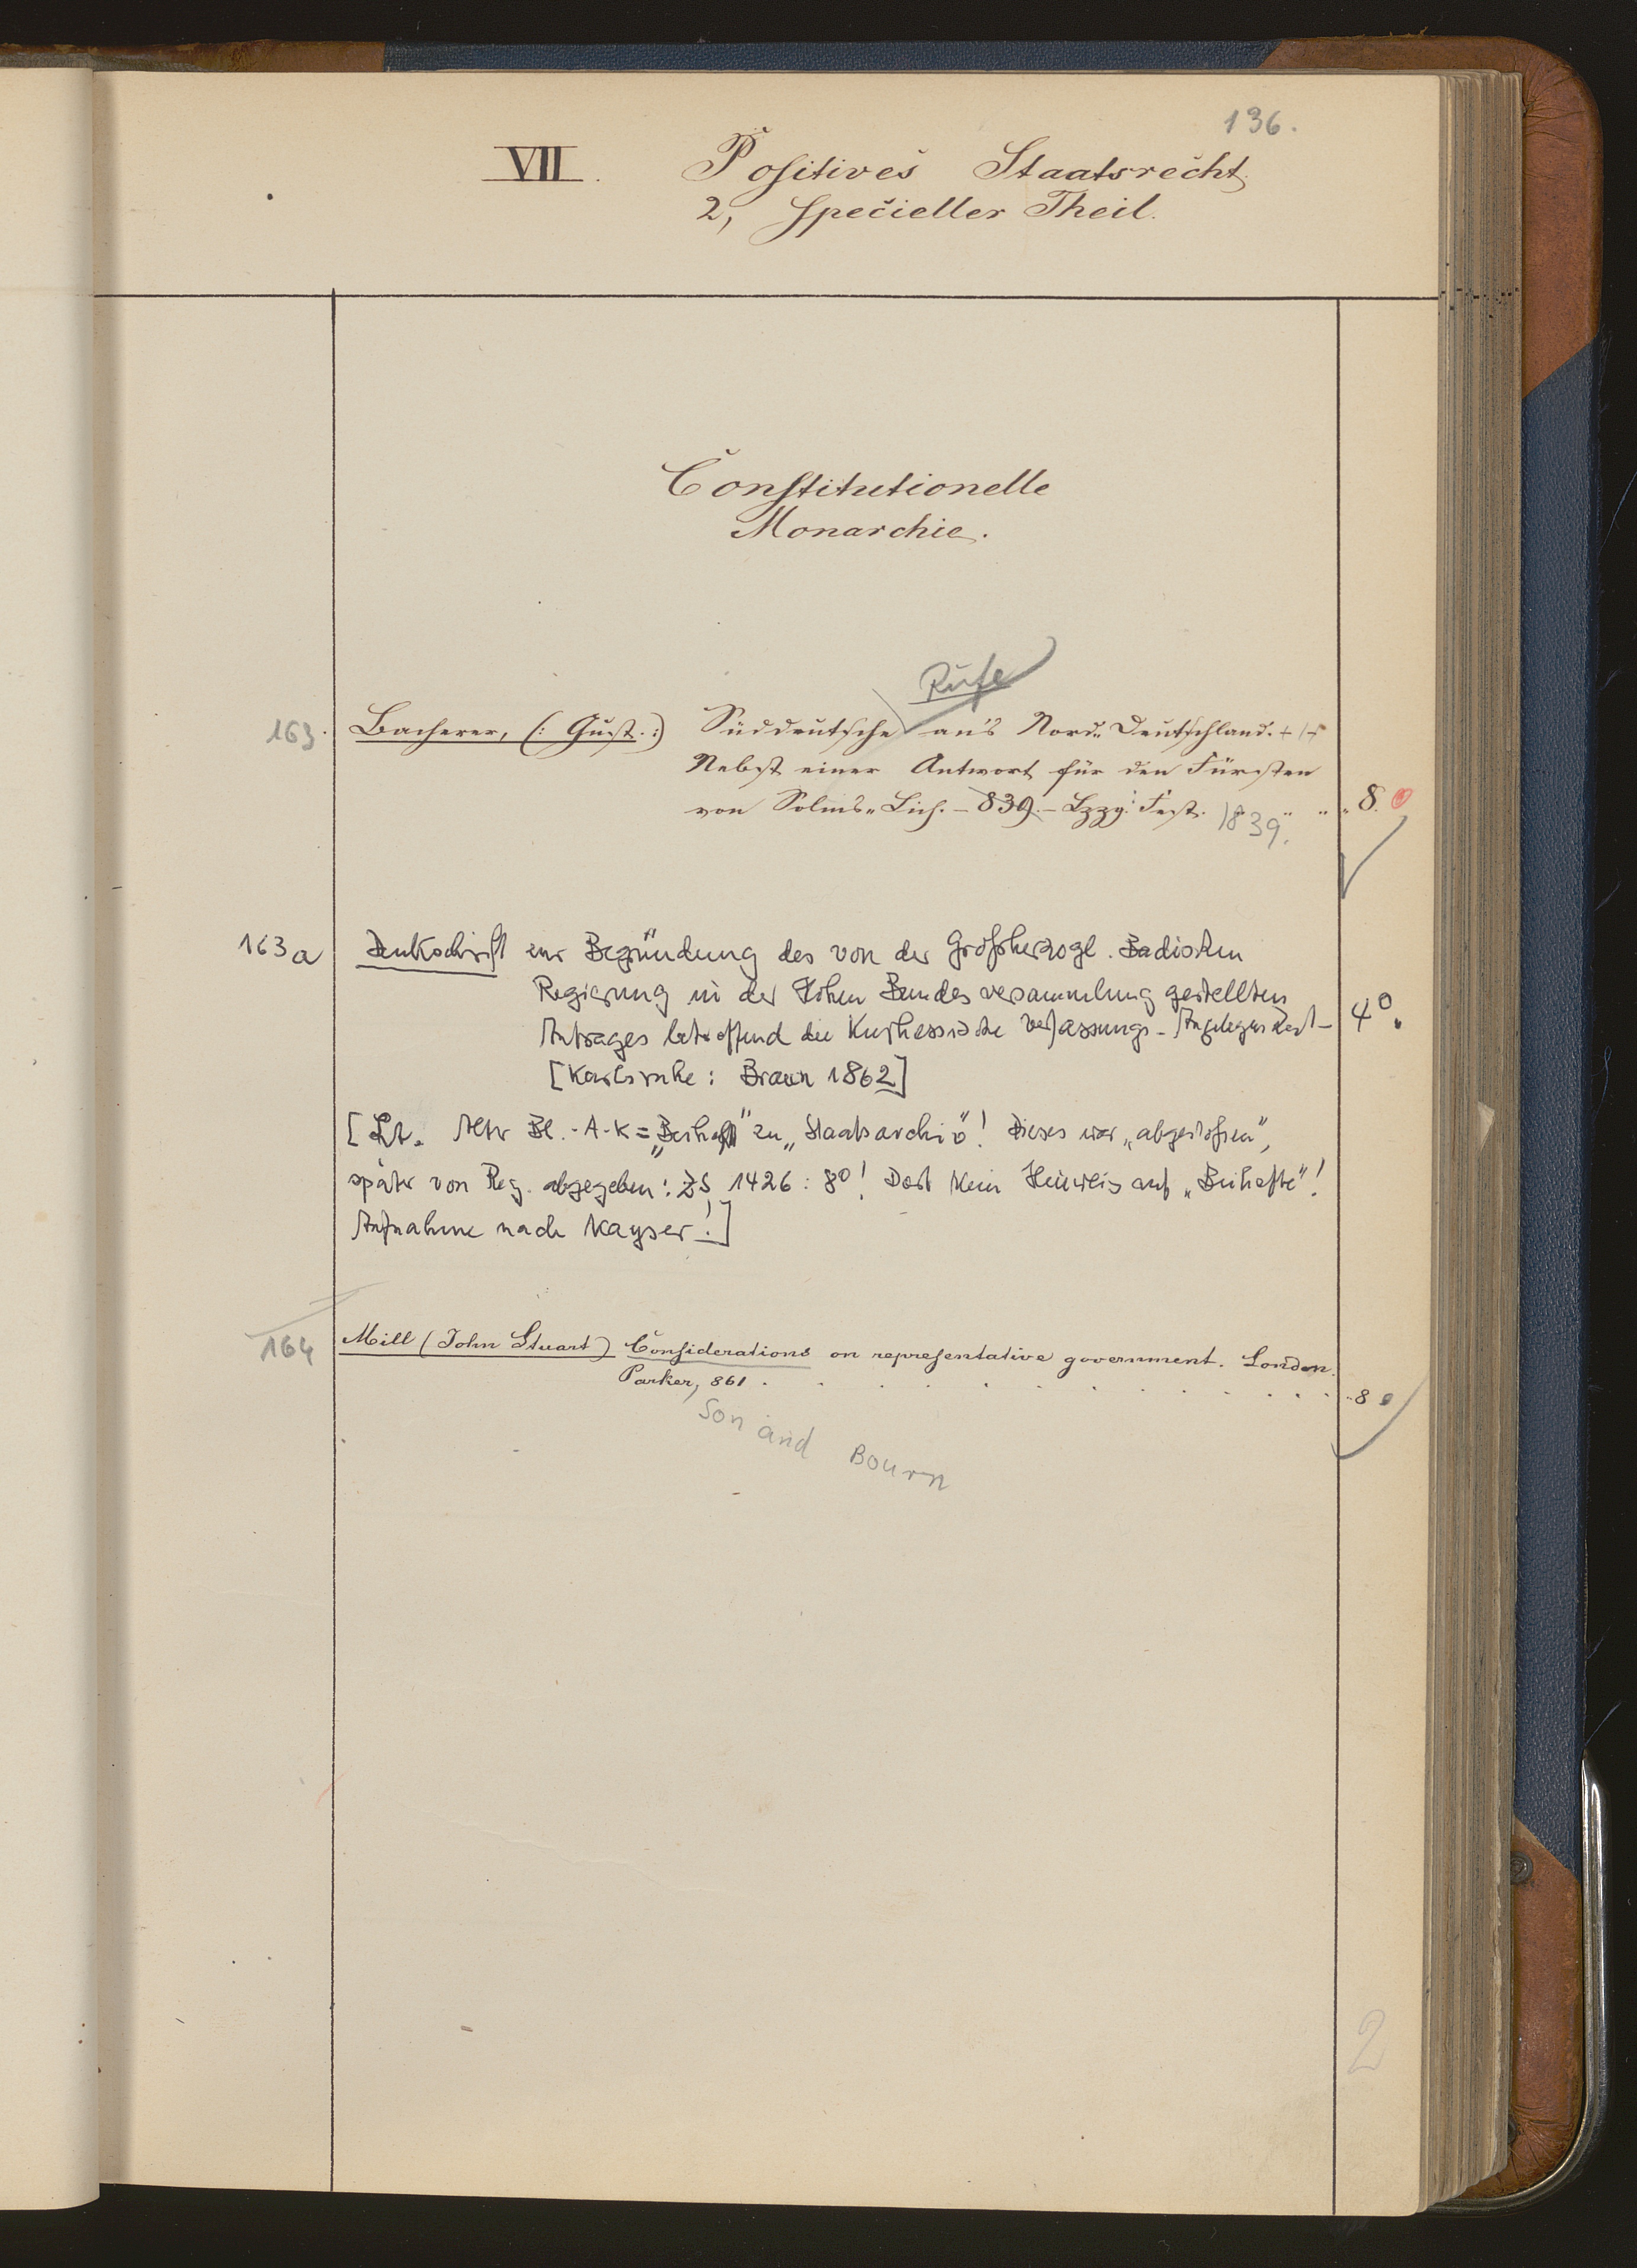 136.
VII. Positives Staatsrecht
2, specieller Theil.
Constitutionelle
Monarchie.
Rufe
163. Bacherer, (: Gust. :) Süddeutsche aus Nord-Deutschland. +/+
Nebst einer Antwort für den Fürsten
von Solms-Lich. – 839. – Lpzg: Fest. 1839. 8. 0
163a Denkschrift zur Begründung des von der Großherzogl. Badischen
Regierung in der Hohen Bundesversammlung gestellten
Antrages betreffend die Kurhessische Verfassungs-Angelegenheit – 4°.
[Karlsruhe: Braun 1862]
[Lt. Alter Bl.-A-K = „Beiheft" zu „Staatsarchiv"! Dieses war „abgestoßen",
später von Reg. abgegeben: ZS 1426: 8°! Dort kein Hinweis auf „Beihefte"!
Aufnahme nach Kayser!]
164 Mill (John Stuart) Considerations on representative government. London.
Parker, 861 . . . . . . . . . . . . 8
Son and Bourn
2